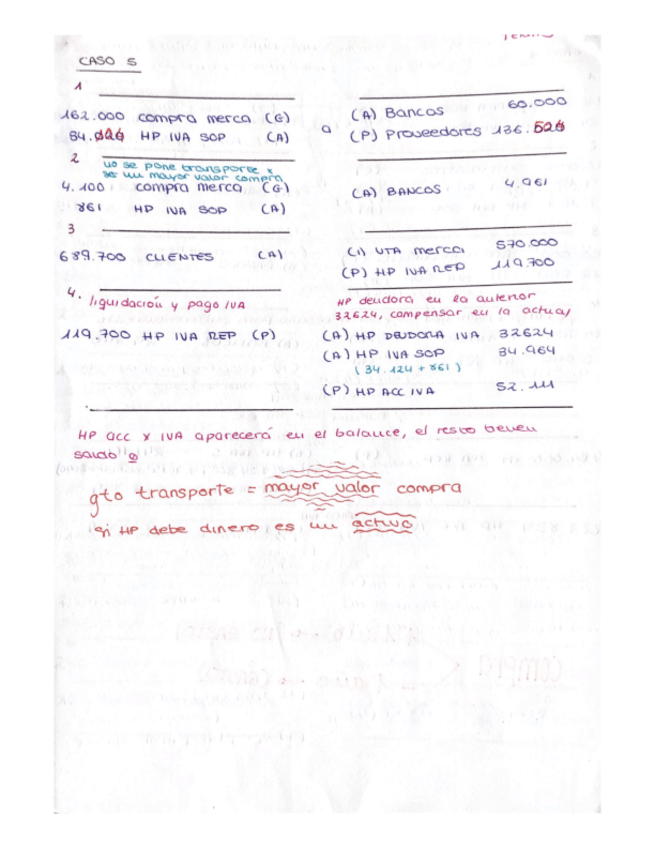 CASO 5
1
162.000 compra merca (G) (A) Bancos 60.000
34.020 HP IVA SOP (A) a (P) Proveedores 136.520
2
no se pone transporte x
ser un mayor valor compra
4.100 compra merca (G) (A) BANCOS 4.961
861 HP IVA SOP (A)
3
689.700 CLIENTES (A) (I) VTA merca 570.000
(P) HP IVA REP 119.700
4. liquidación y pago IVA HP deudora en la anterior
32624, compensar en la actual
119.700 HP IVA REP (P) (A) HP DEUDORA IVA 32624
(A) HP IVA SOP 34.964
(34.124 + 861)
(P) HP ACC IVA 52.111
HP acc x IVA aparecerá en el balance, el resto tienen
saldo 0
gto transporte = mayor valor compra
si HP debe dinero es un activo